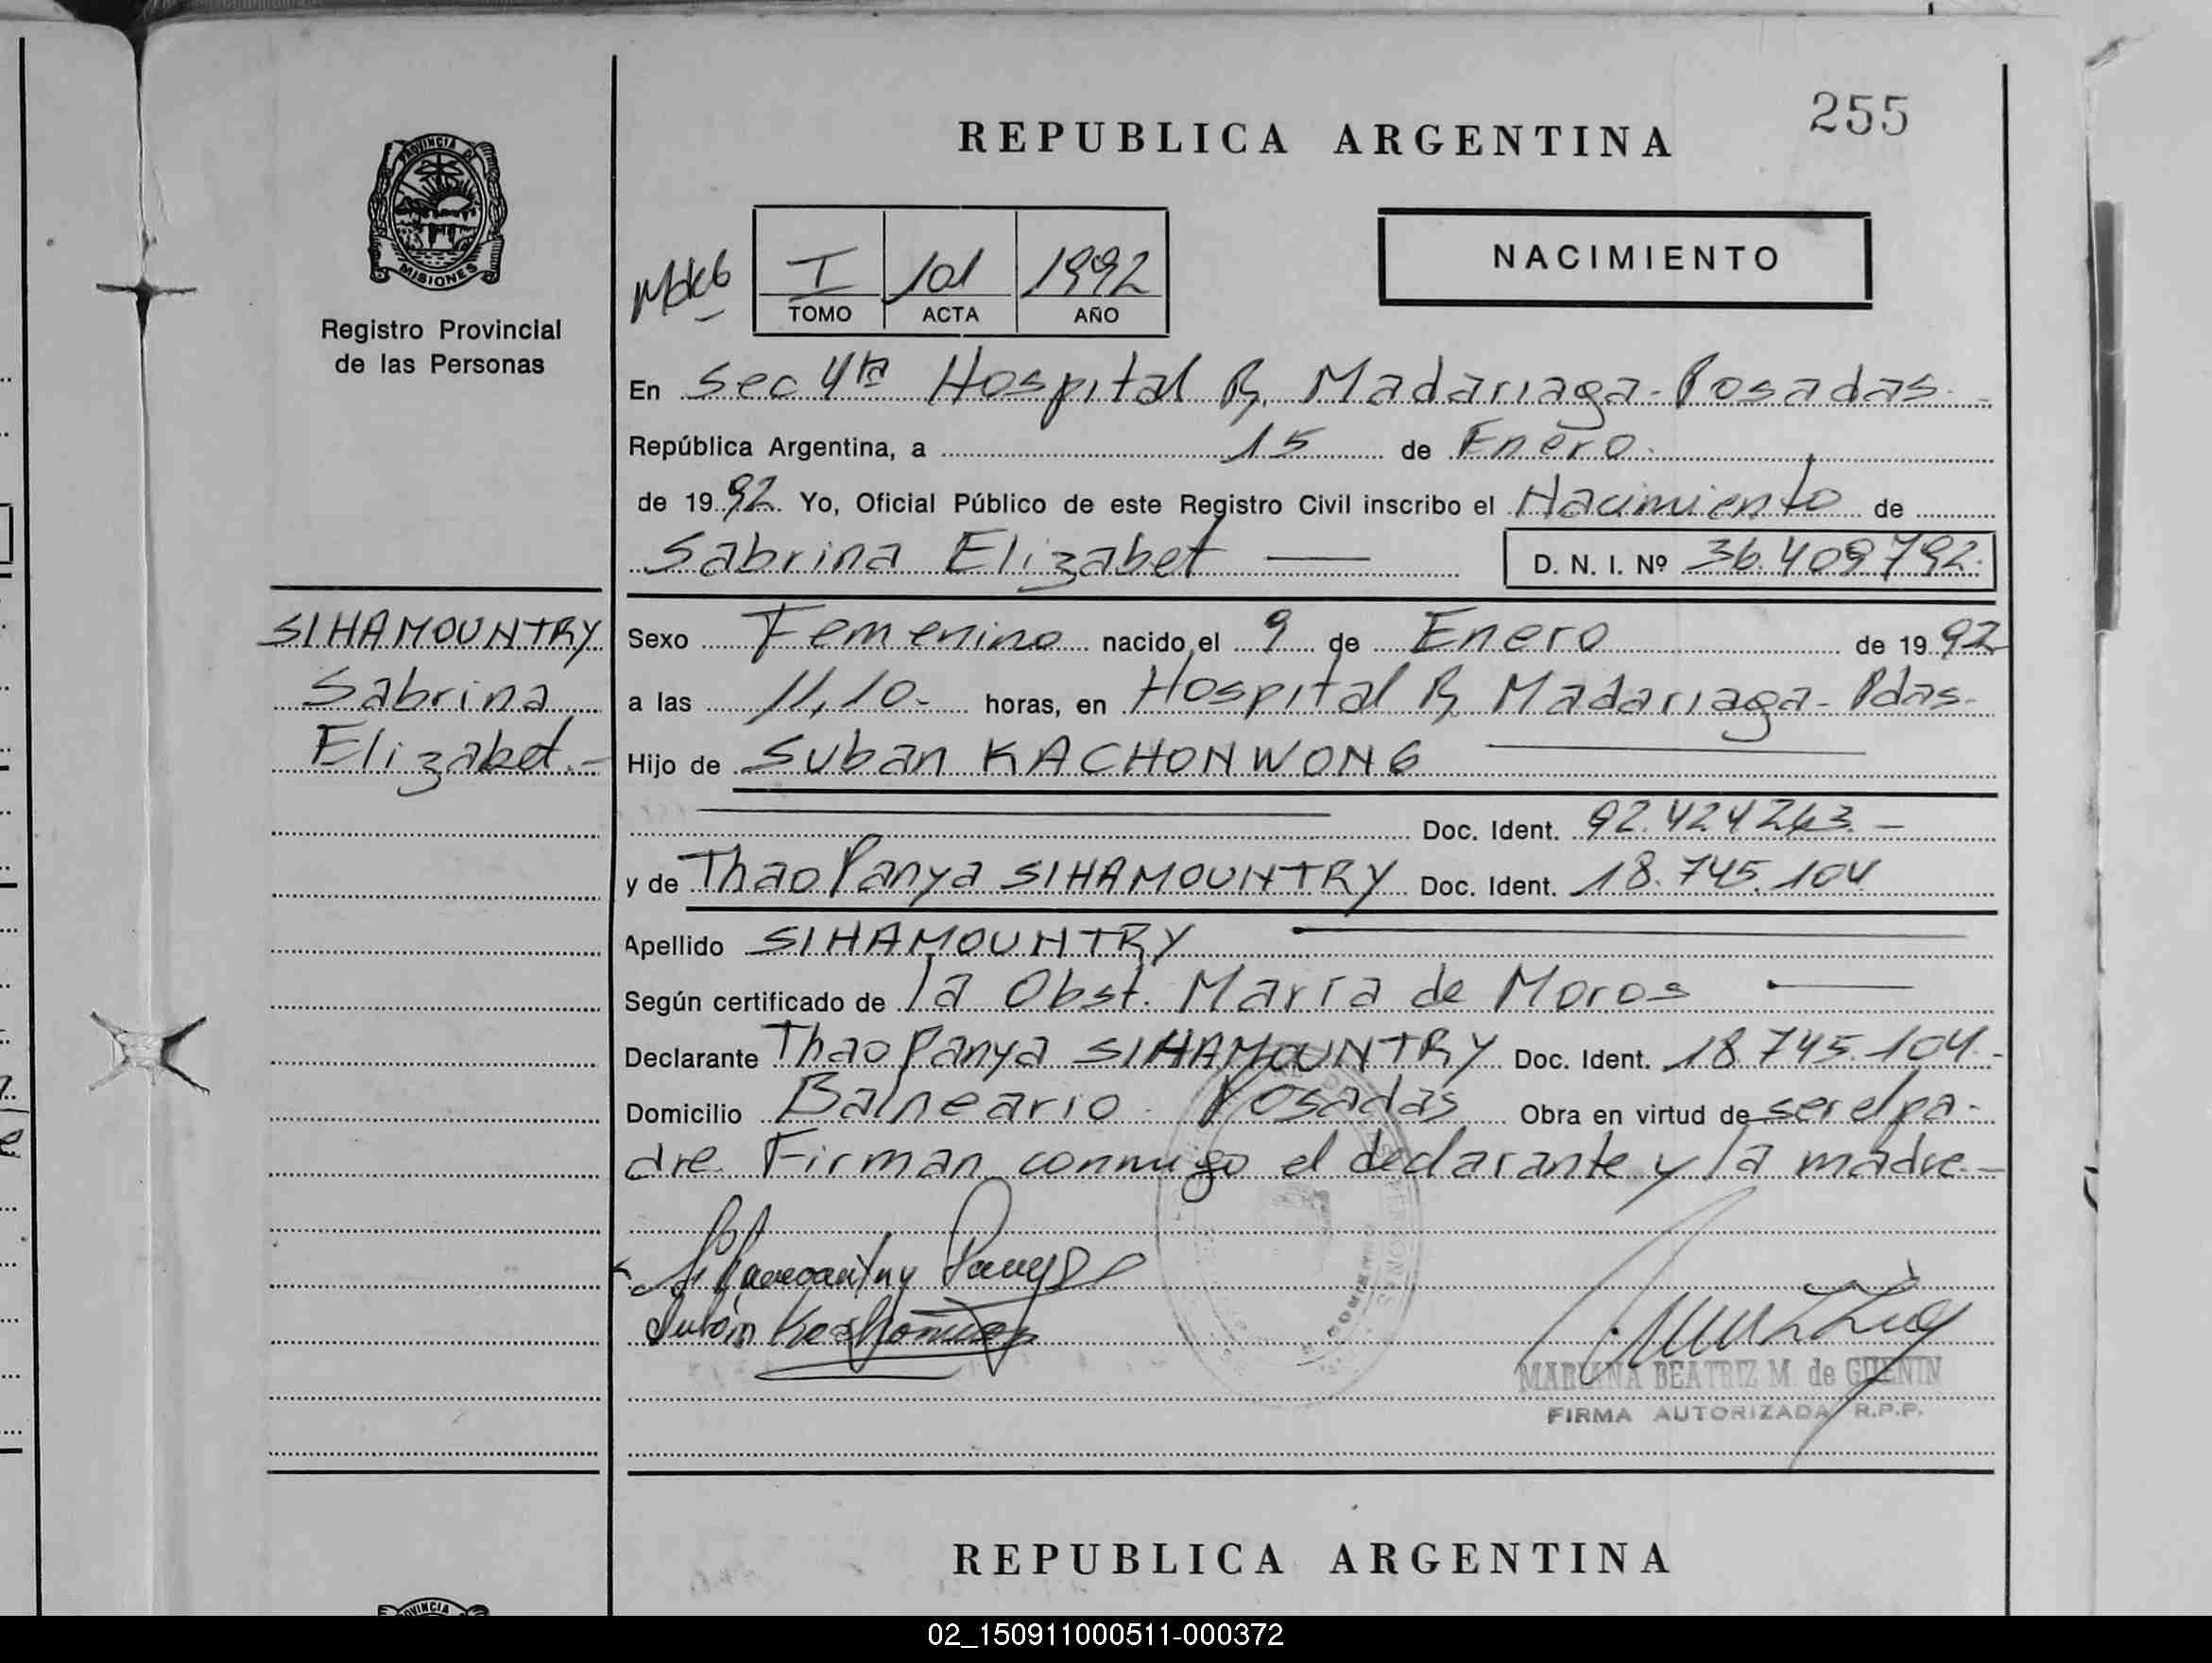 255
REPUBLICA ARGENTINA
PROVINCIA DE
MISIONES
Registro Provincial
de las Personas
I 101 1992
TOMO ACTA AÑO
NACIMIENTO
En Sec 4ta Hospital R. Madariaga - Posadas -
República Argentina, a 15 de Enero.
de 1992. Yo, Oficial Público de este Registro Civil inscribo el Nacimiento de
Sabrina Elizabet — D. N. I. Nº 36.409792.
SIHAMOUNTRY
Sabrina
Elizabet.-
Sexo Femenino nacido el 9 de Enero de 1992
a las 11,10- horas, en Hospital R. Madariaga - Pdas-
Hijo de Suban KACHONWONG
Doc. Ident. 92.424263.-
y de Thao Panya SIHAMOUNTRY Doc. Ident. 18.745.104
Apellido SIHAMOUNTRY
Según certificado de la Obst. María de Moros —
Declarante Thao Panya SIHAMOUNTRY Doc. Ident. 18.745.104.-
Domicilio Balneario. Posadas Obra en virtud de ser el pa-
dre. Firman conmigo el declarante y la madre.-
MARIANA BEATRIZ M. de GUENIN
FIRMA AUTORIZADA R.P.P.
REPUBLICA ARGENTINA
PROVINCIA
02_150911000511-000372